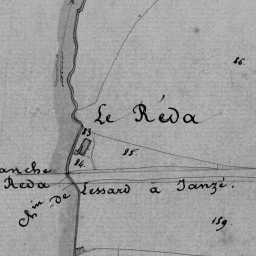 26.
Le Réda
23
24.
25.
anche
Reda
chin de Lessard a Janzé.
159